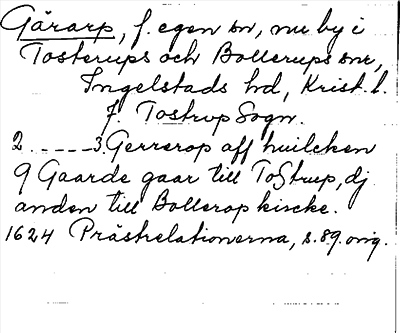 Gärarp, f. egen sn, nu by i
Tosterups och Bollerups snr,
Ingelstads hd, Krist. l.
7. Tostrup Sogn.
2 _ _ _ _ _ 3. Gerrerop aff huilcken
9 Gaarde gaar till Tostrup, dj
anden till Bollerop kircke.
1624 Prästrelationerna, s. 89. orig.